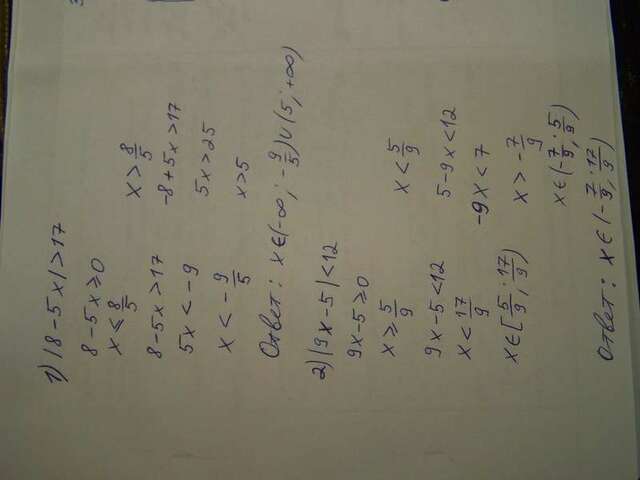 1) |8-5x|>17
8-5x≥0
x≤8/5 x>8/5
8-5x>17 -8+5x>17
5x<-9 5x>25
x<-9/5 x>5
Ответ: x∈(-∞;-9/5)∪(5;+∞)
2) |9x-5|<12
9x-5≥0
x≥5/9 x<5/9
9x-5<12 5-9x<12
x<17/9 -9x<7
x∈[5/9;17/9) x>-7/9
x∈(-7/9;5/9)
Ответ: x∈(-7/9;17/9)